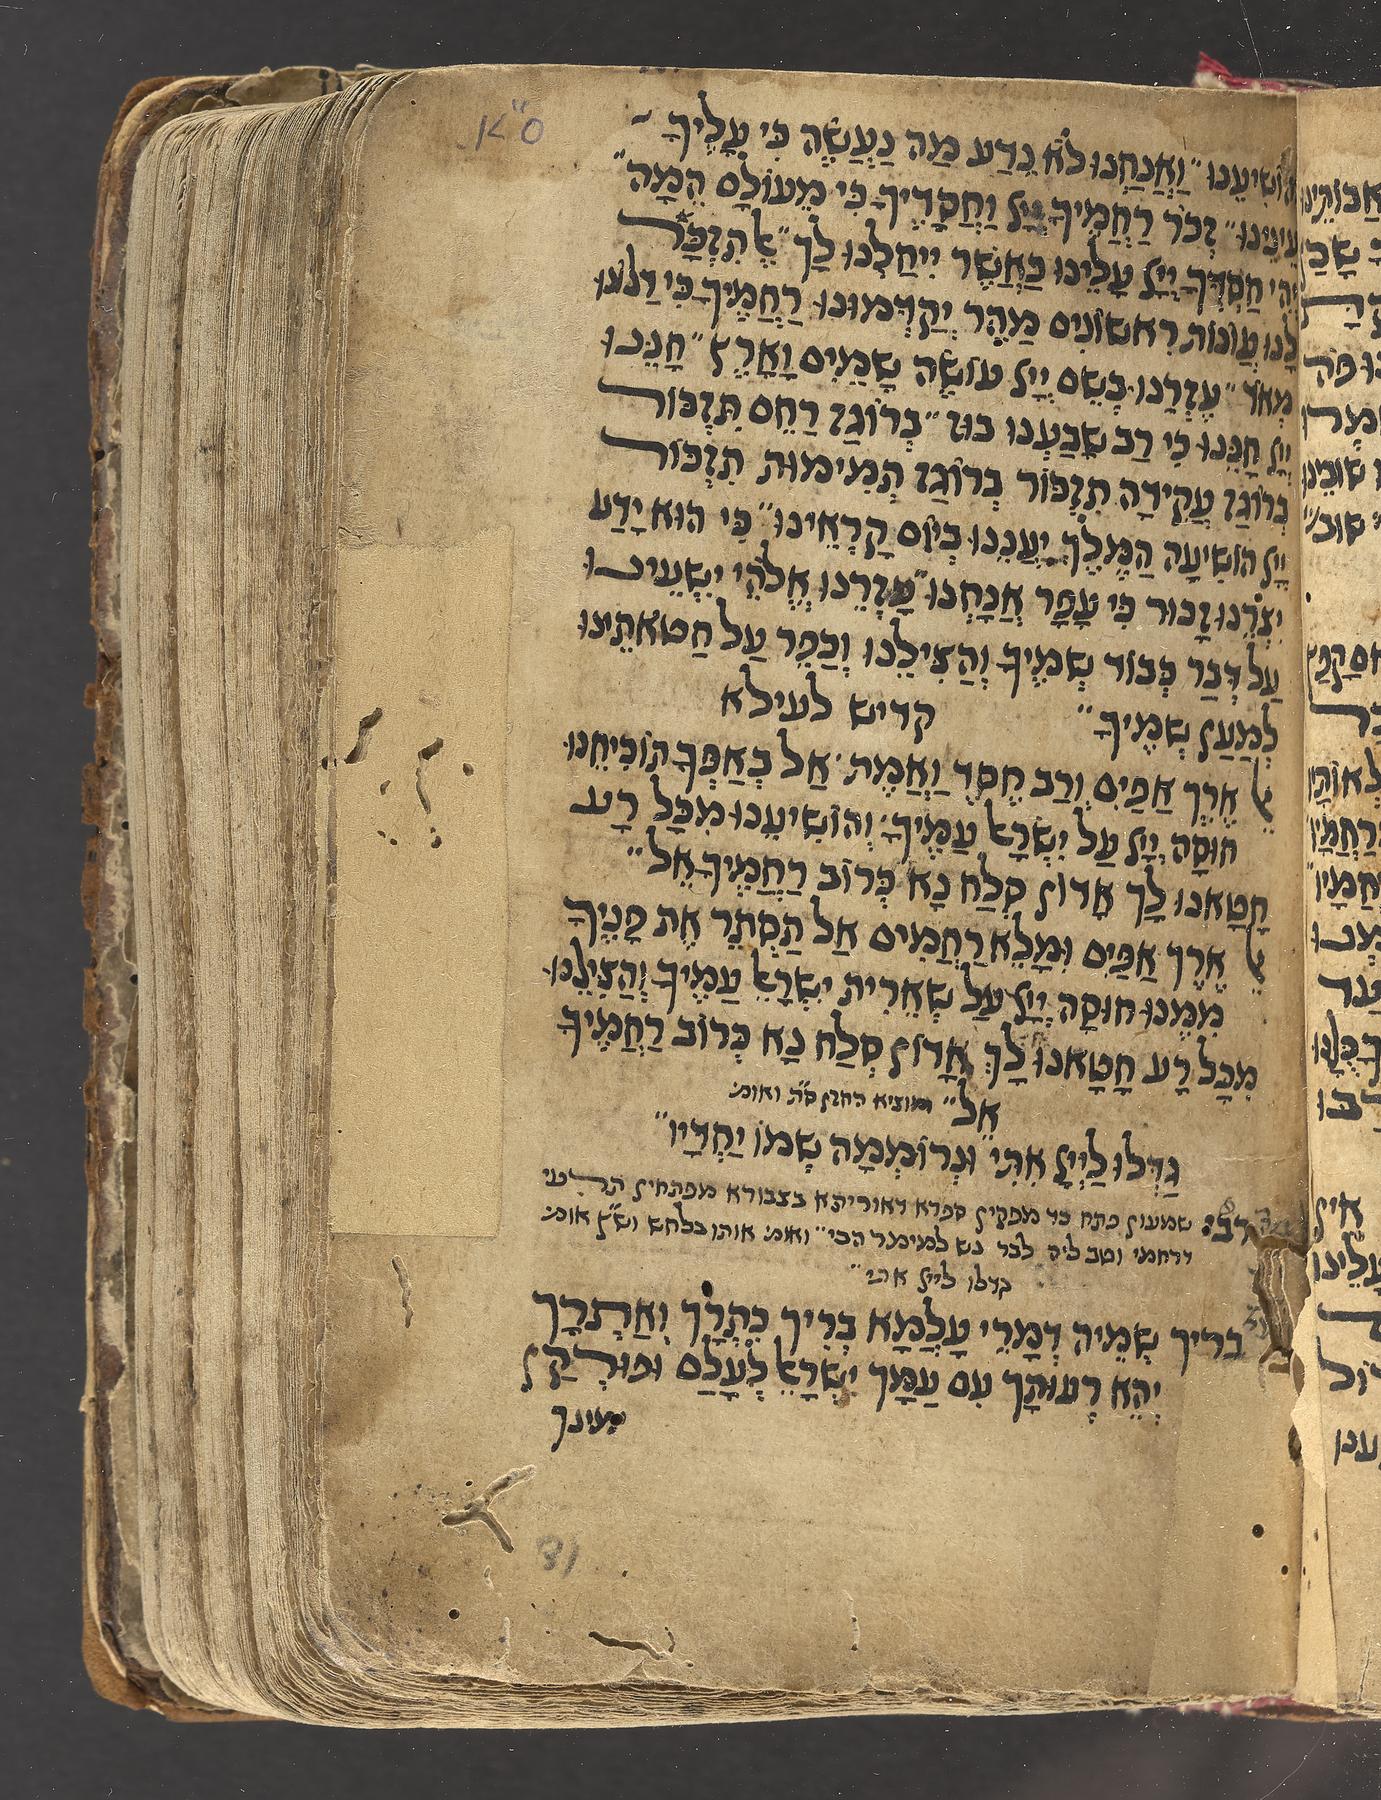 ס"א
הושיענו" וַאֲנַחְנוּ לֹא נֵדַע מַה נַעֲשֶׂה כִּי עָלֶיךָ
עֵינֵינוּ" זְכֹר רַחֲמֶיךָ יְיָ וַחֲסָדֶיךָ כִּי מֵעוֹלָם הֵמָּה"
יְהִי חַסְדְּךָ יְיָ עָלֵינוּ כַּאֲשֶׁר יִיחַלְנוּ לָךְ" אַל תִּזְכָּר
לָנוּ עֲוֹנוֹת רִאשׁוֹנִים מַהֵר יְקַדְּמוּנוּ רַחֲמֶיךָ כִּי דַלּוֹנוּ
מְאֹד" עֶזְרֵנוּ בְּשֵׁם יְיָ עוֹשֶׂה שָׁמַיִם וָאָרֶץ" חָנֵּנוּ
יְיָ חָנֵּנוּ כִּי רַב שָׂבַעְנוּ בוּז" בְּרוֹגֶז רַחֵם תִּזְכּוֹר
בְּרוֹגֶז עֲקֵידָה תִזְכּוֹר בְּרוֹגֶז תְּמִימוּת תִזְכּוֹר
יְיָ הוֹשִׁיעָה הַמֶּלֶךְ יַעֲנֵנוּ בְיוֹם קָרְאֵינוּ" כִּי הוּא יָדַע
יִצְרֵנוּ זָכוּר כִּי עָפָר אֲנָחְנוּ" עָזְרֵנוּ אֱלֹהֵי יִשְׁעֵינוּ
עַל דְּבַר כְּבוֹד שְׁמֶיךָ וְהַצִּילֵנוּ וְכַפֵּר עַל חַטֹּאתֵינוּ
לְמַעַן שְׁמֶיךָ" קדיש לעילא
אֵל אֶרֶךְ אַפַּיִם וְרַב חֶסֶד וַאֲמֶת אַל בְּאַפְּךָ תוֹכִיחֵנוּ
חוּסָה יְיָ עַל יִשְׂרָאֵל עַמֶּיךָ וְהוֹשִׁיעֵנוּ מִכָּל רָע
חָטָאנוּ לָךְ אָדוֹן סְלַח נָא כְּרוֹב רַחֲמֶיךָ אֵל"
אֵל אֶרֶךְ אַפַּיִם וּמָלֵא רַחֲמִים אַל תַסְתֵּר אֶת פָּנֶיךָ
מִמֶּנוּ חוּסָה יְיָ עַל שְׁאֵרִית יִשְׂרָאֵל עַמֶּיךָ וְהַצִּילֵנוּ
מִכָּל רָע חָטָאנוּ לָךְ אָדוֹן סְלַח נָא כְּרוֹב רַחֲמֶיךָ
אֵל" ומוציא החזן ס"ת ואומ'
גַּדְּלוּ לַיְיָ אִתִּי וּנְרוֹמְמָה שְׁמוֹ יַחְדָּיו"
רבי שמעון פתח כד מפקין ספרא דאוריתא בצבורא מפתחין תרעי
דרחמי וטב ליה לבר נש למימר הכי" ואומ' אותו בלחש וש"ץ אומ'
גדלו לייי אתי"
בריך שְׁמֵיהּ דְּמָרֵי עָלְמָא בְּרִיךְ כִּתְרָךְ וְאַתְרָךְ
יְהֵא רְעוּתָךְ עִם עַמָּךְ יִשְׂרָאֵל לְעָלַם וּפוּרְקַן
ימינך